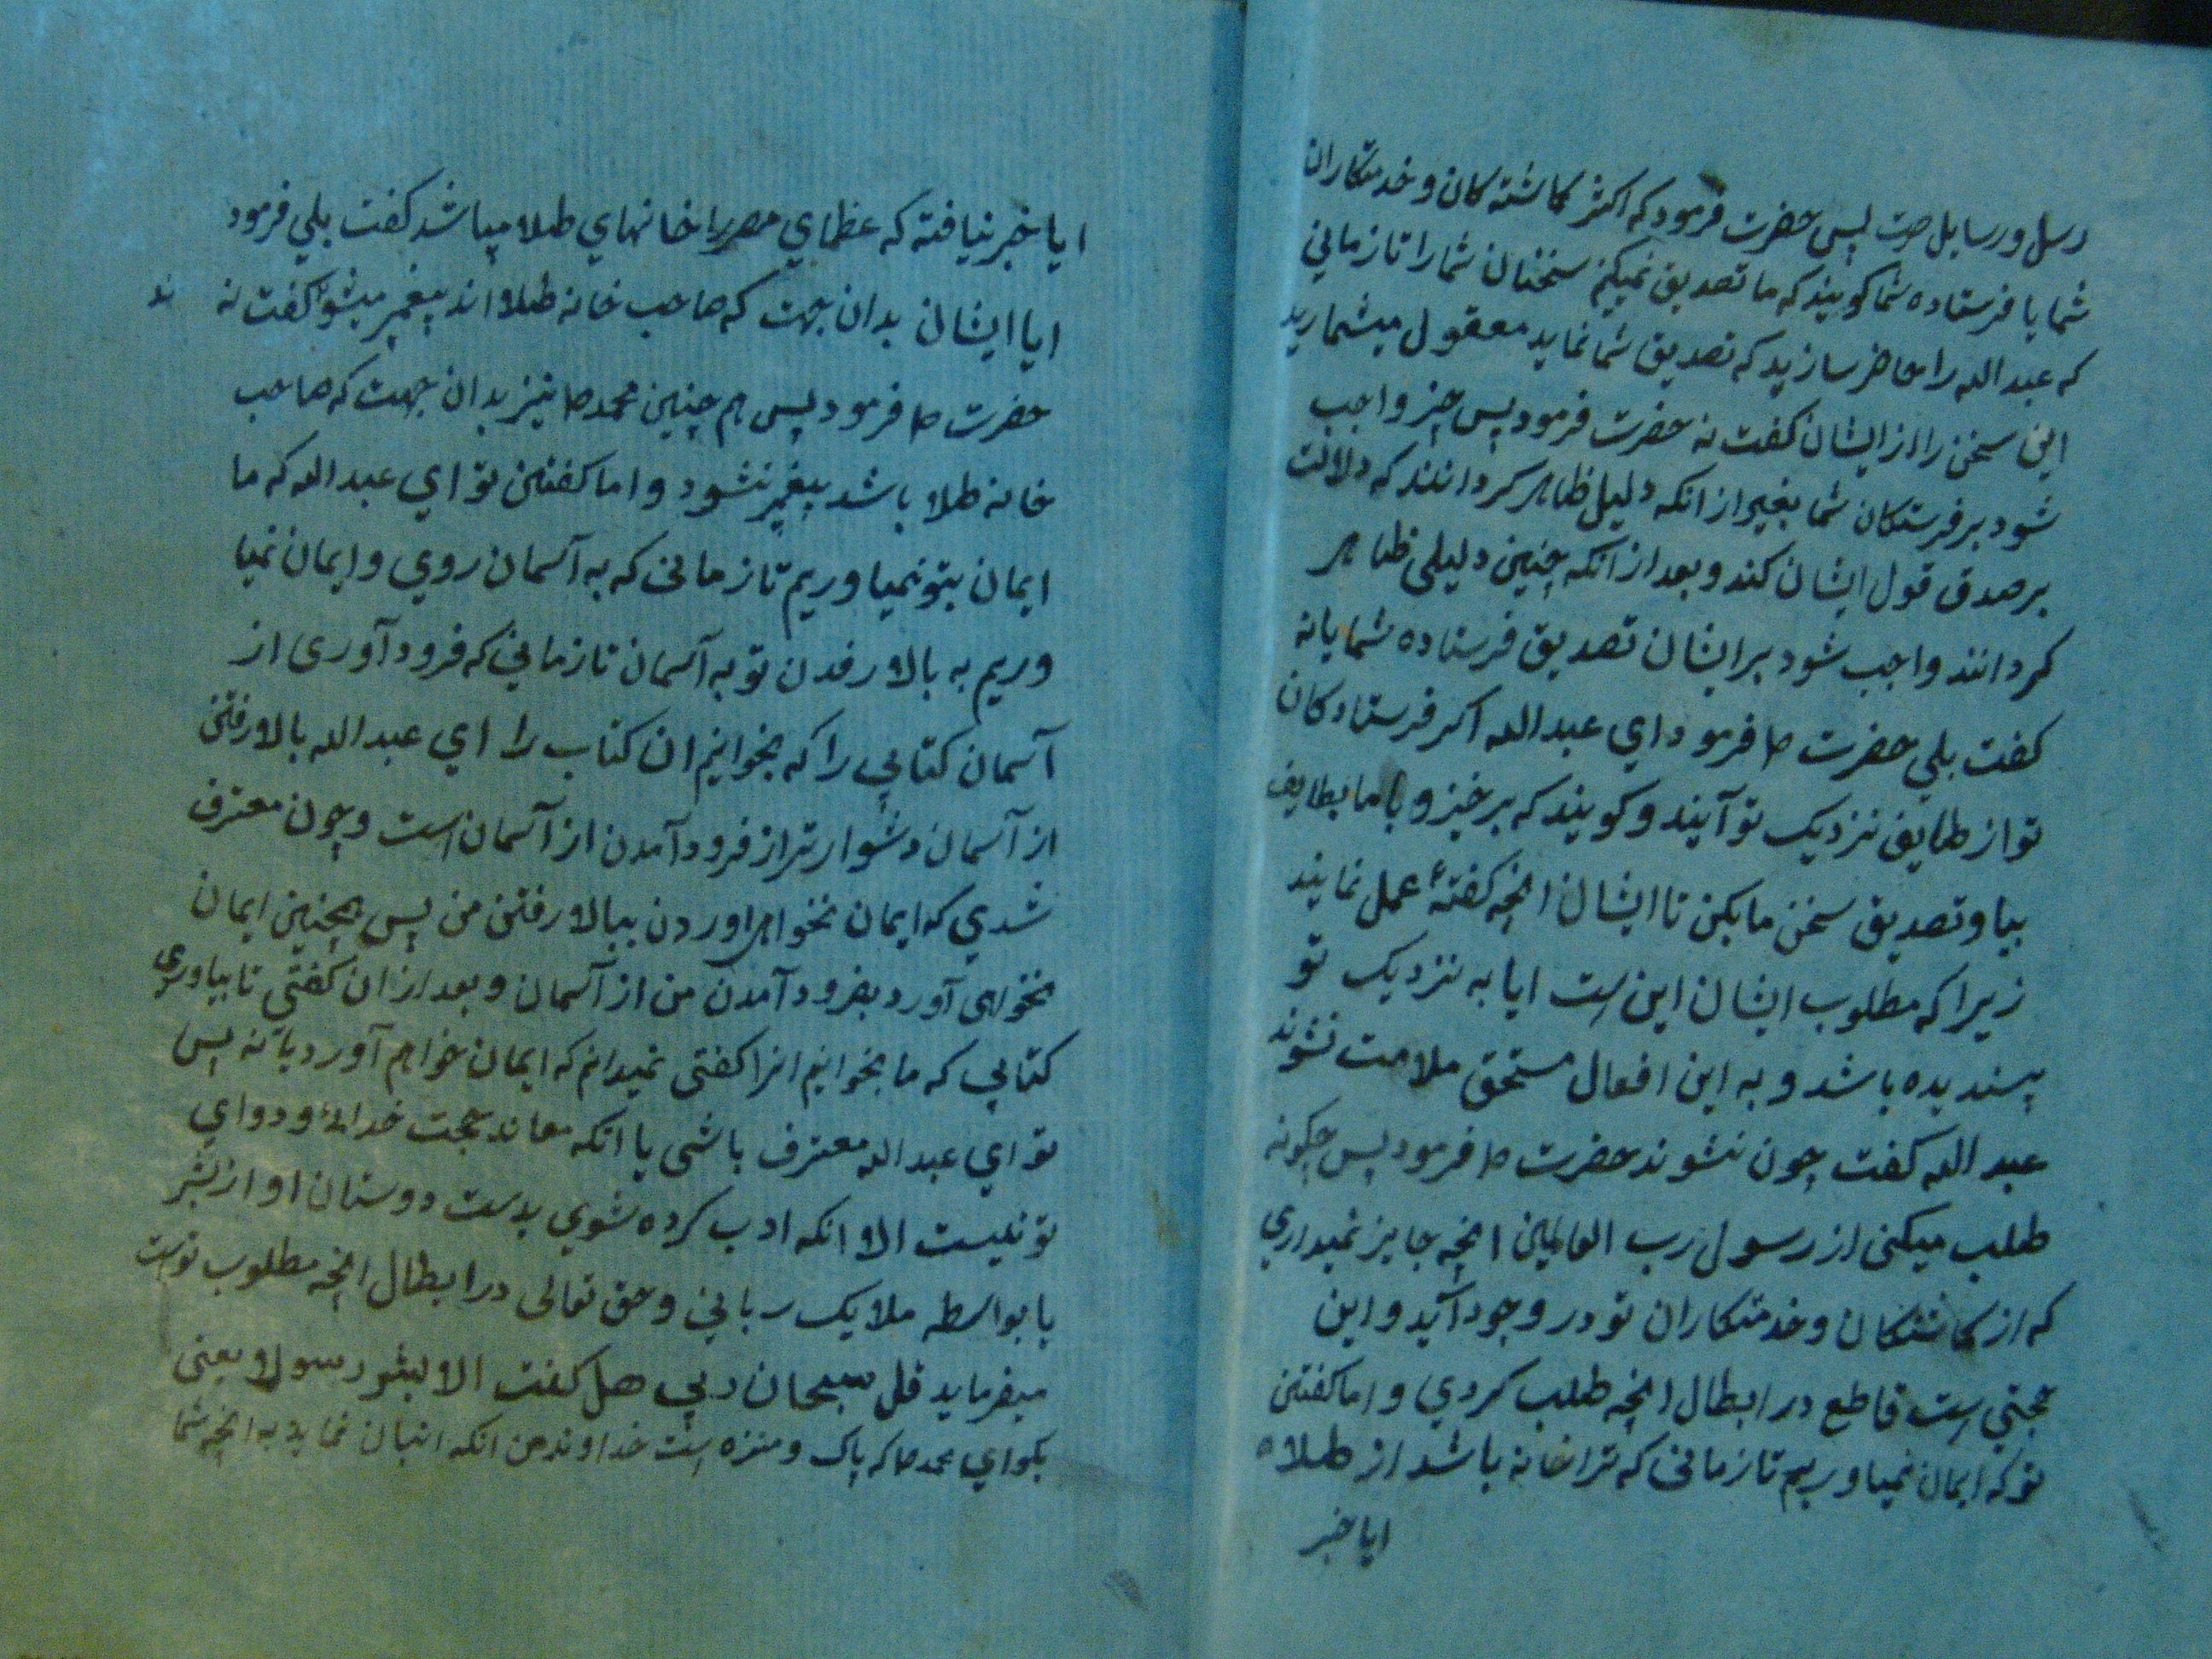 رسل و رسایل صرت پس حضرت فرمود که اکثر کماشته کان و خدمتکاران
شما یا فرستاده شما کویند که ما تصدیق نمیکنم سخنان شما را تا زمانی
که عبد الله را حاضر سازید که تصدیق شما نماید معقول میشمارید
این سخن را از ایشان کفت نه حضرت فرمود پس چیز واجب
شود بر فرستکان شما بغیر از انکه دلیل ظاهر کردانند که دلالت
بر صدق قول ایشان کند و بعد از انکه چنین دلیلی ظاهر
کردانند واجب شود بر ایشان تصدیق فرستاده شما یا نه
کفت بلی حضرت ص فرمود ای عبد الله اکر فرستادکان
تو از طایف نزدیک تو آیند و کویند که برخیز و با ما بطایف
بیا و تصدیق سخن ما بکن تا ایشان انچه کفتهٔ عمل نمایند
زیرا که مطلوب ایشان این است ایا به نزدیک تو
پسندیده باشد و به این افعال مستحق ملامت نشوند
عبد الله کفت چون نشوند حضرت ص فرمود پس چکونه
طلب میکنی از رسول رب العالمین انچه جایز نمیداری
که از کماشتکان و خدمتکاران تو در وجود آید و این
حجتی است قاطع در ابطال انچه طلب کردی و اما کفتن
تو که ایمان نمیاوریم تا زمانی که ترا خانه باشد از طلا ه
ایا خبر
ایا خبر نیافته که عظمای مصر را خانهای طلا میباشد کفت بلی فرمود
ایا ایشان بدان جهت که صاحب خانه طلا اند پیغمبر میشوند کفت نه
حضرت ص فرمود پس هم چنین محمد ص نیز بدان جهت که صاحب
خانه طلا باشد پیغمبر نشود و اما کفتن تو ای عبد الله که ما
ایمان بتو نمیاوریم تا زمانی که به آسمان روی و ایمان نمیا
وریم به بالا رفدن تو به آسمان تا زمانی که فرود آوری از
آسمان کتابی را که بخوانیم ان کتاب را ای عبد الله بالا رفتن
از آسمان دشوارتر از فرود آمدن از آسمان است و چون معترف
شدی که ایمان نخواهی اوردن ببالا رفتن من پس همچنین ایمان
نخواهی آورد بفرود آمدن من از آسمان و بعد از ان کفتی تا بیاوری
کتابی که ما بخوانیم انرا کفتی نمیدانم که ایمان خواهم آورد یا نه پس
تو ای عبد الله معترف باشی با انکه معاند حجت خدایی و دوای
تو نیست الا انکه ادب کرده شوی بدست دوستان او از بشر
یا بواسطه ملایک ربانی و حق تعالی در ابطال انچه مطلوب توست
میفرماید قل سبحان ربی هل کنت الا بشر رسولا و یعنی
بکو ای محمد ص که پاک و منزه است خداوند من انکه اتیان نماید به انچه شما